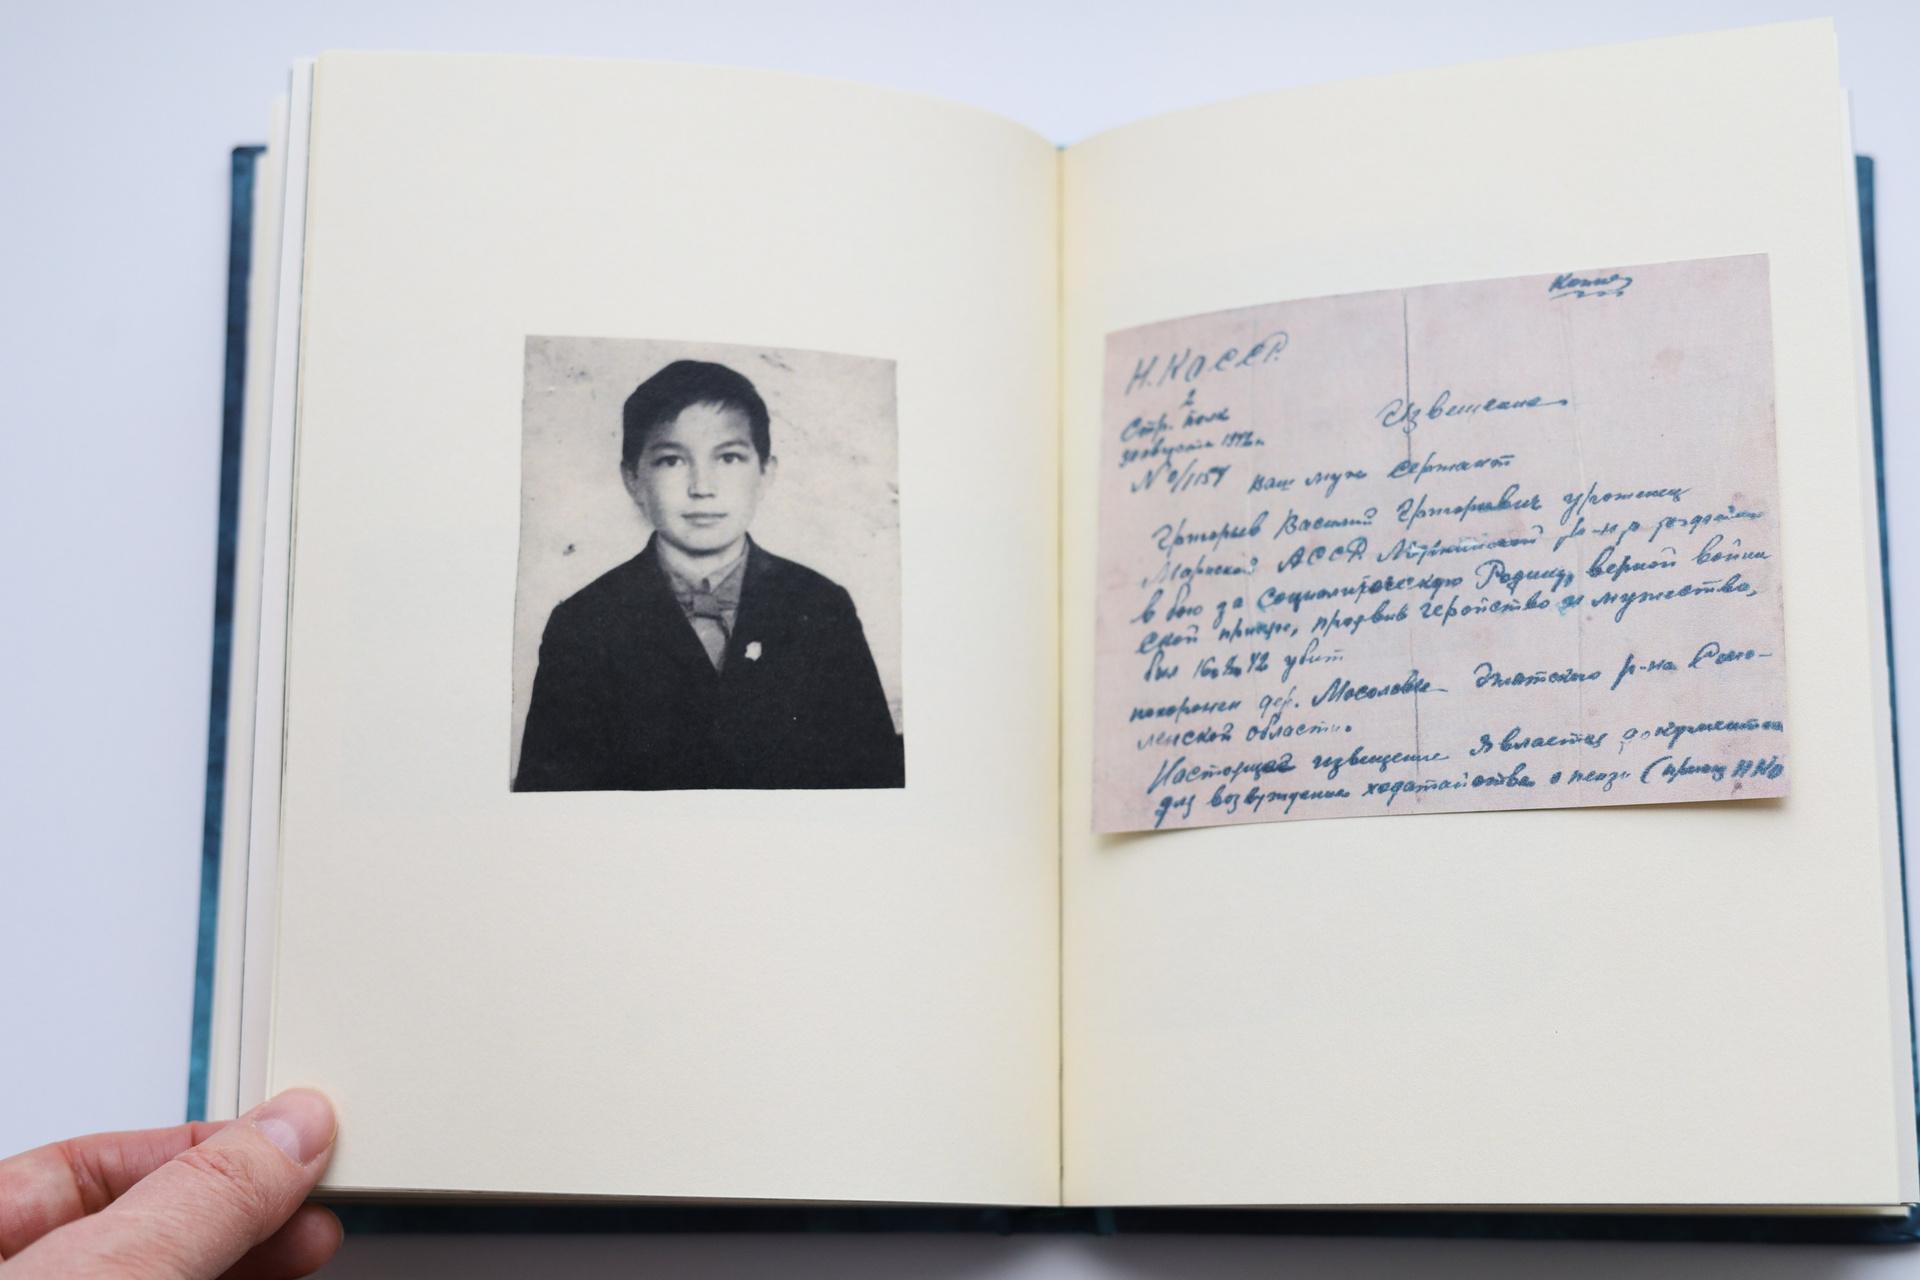 Копия
Н.К.О С.С.Р.
2
Стр. полк
30 августа 1942 г.
Извещение
№ 0/1154 Ваш муж сержант
Григорьев Василий Григорьевич уроженец
Марийской АССР р-на
в бою за социалистическую Родину, верный воин
ской присяге, проявив геройство и мужество,
был 16.8.42 убит
похоронен дер. Мосоловые р-на Смо-
ленской области.
Настоящее извещение является документом
для возбуждения ходатайства о пенз. (приказ НКО